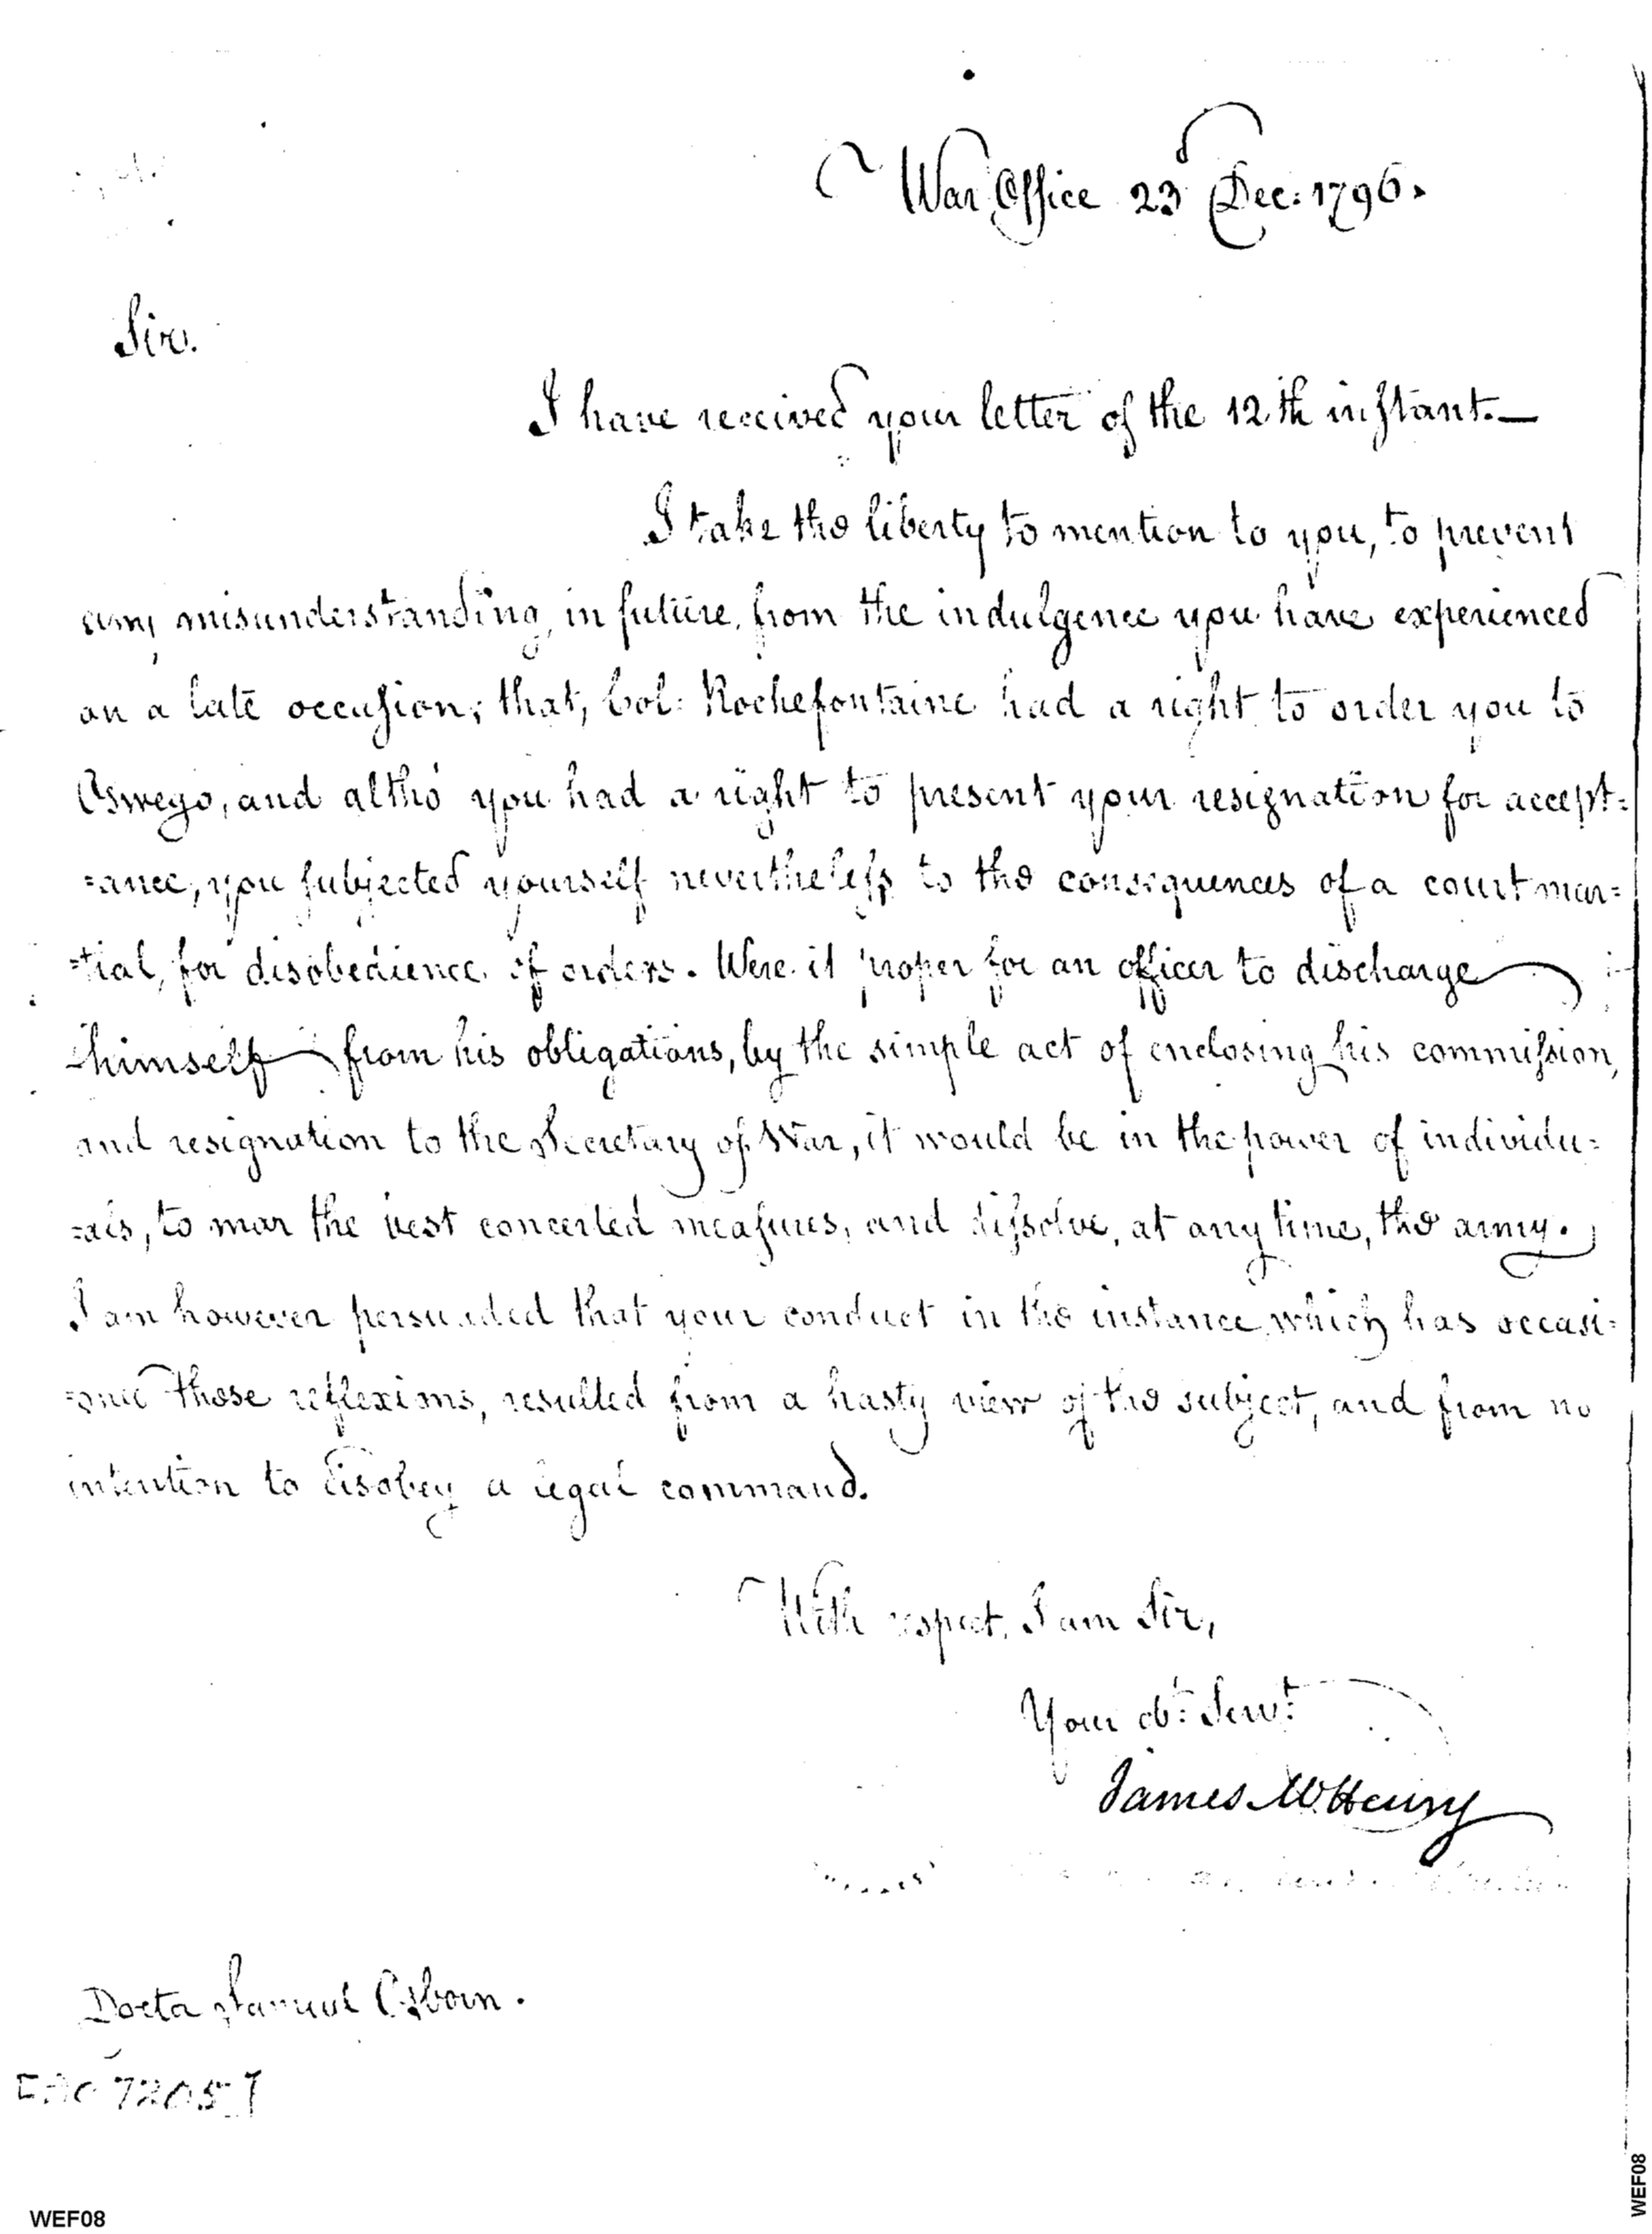 War Office 23d Dec: 1796.
Sir.
I have received your letter of the 12th instant.—
I take the liberty to mention to you, to prevent
any misunderstanding, in future, from the indulgence you have experienced
on a late occasion; that, Col: Rochefontaine had a right to order you to
Oswego, and altho' you had a right to present your resignation for accept=
=ance, you subjected yourself nevertheless to the consequences of a court mar=
=tial, for disobedience of orders. Were it proper for an officer to discharge
himself from his obligations, by the simple act of enclosing his commission,
and resignation to the Secretary of War, it would be in the power of individu=
=als, to mar the best concerted measures, and dissolve, at any time, the army.
I am however persuaded that your conduct in the instance which has occasi=
=oned those reflexions, resulted from a hasty view of the subject, and from no
intention to disobey a legal command.
With respect, I am Sir,
Your obt: Servt:
James McHenry
Doctor Samuel Osborn.
7205]
WEF08
WEF08